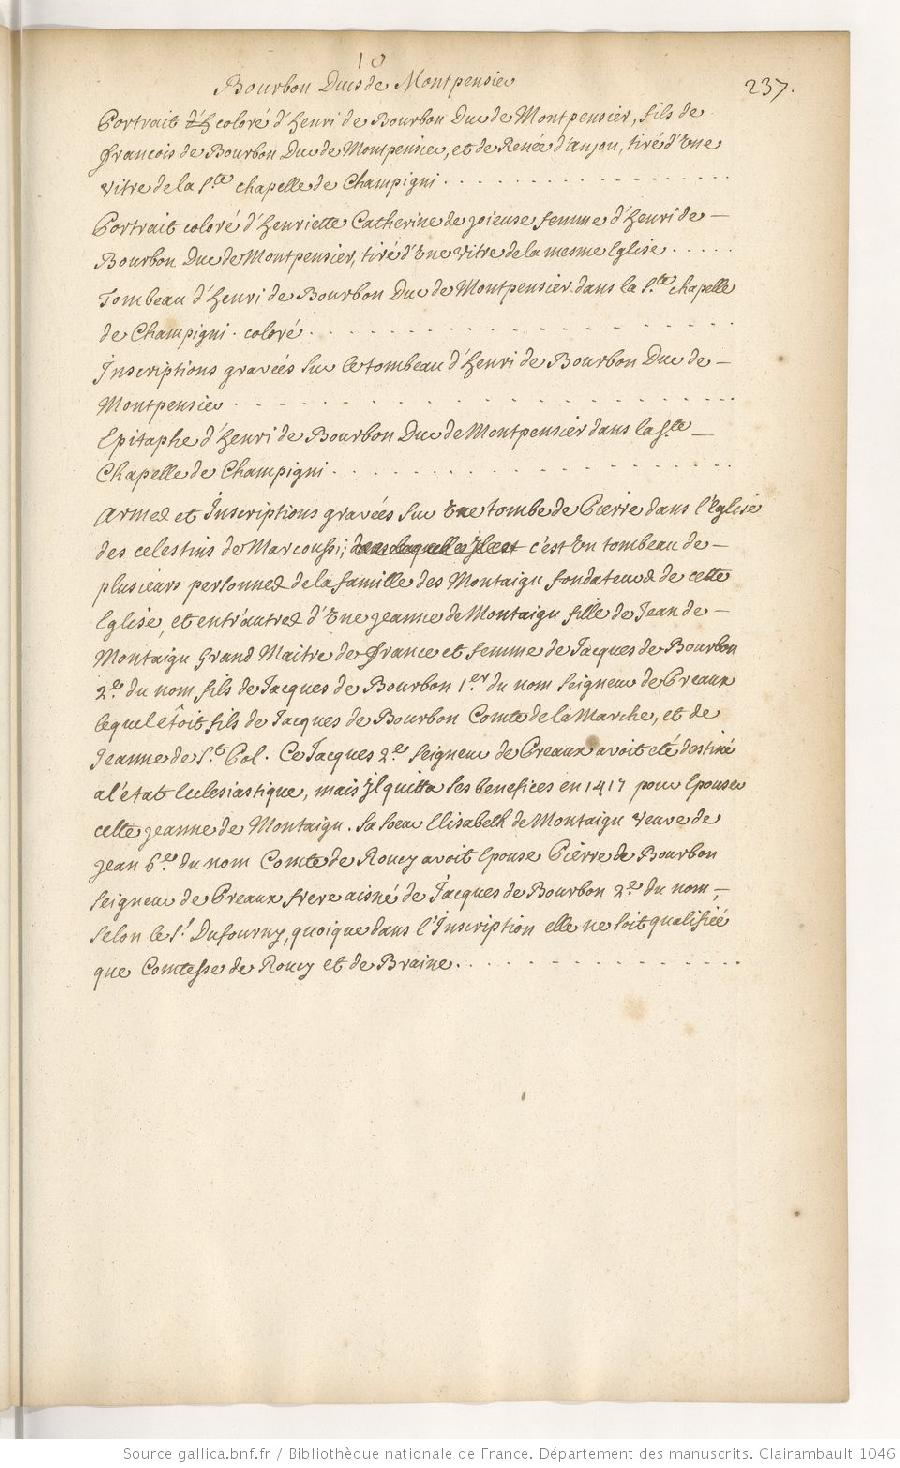 10
Bourbon Ducs de Montpensier
237.
Portrait coloré d'Henri de Bourbon Duc de Montpensier, fils de
francois de Bourbon Duc de Montpensier, et de Renée d'anjou, tiré d'Une
vitre de la Ste chapelle de Champigni . . . . . . . . . . . . . . . . .
Portrait coloré d'Henriette Catherine de joieuse femme d'Henri de –
Bourbon Duc de Montpensier, tiré d'Une vitre de la mesme Eglise . . . . .
Tombeau d'Henri de Bourbon Duc de Montpensier dans la Ste chapelle
de Champigni . coloré . . . . . . . . . . . . . . . . .
Inscriptions gravées sur le tombeau d'Henri de Bourbon Duc de –
Montpensier . . . . . . . . . . . . . . . . . . . .
Epitaphe d'Henri de Bourbon Duc de Montpensier dans la Ste –
Chapelle de Champigni . . . . . . . . . . . . . . . .
Armes et Inscriptions gravées sur Une tombe de Pierre dans l'Eglise
des celestins de Marcoussi; c'est Un tombeau de –
plusieurs personnes de la famille des Montaigu fondateurs de cette
Eglise, et entr'autres d'Une jeanne de Montaigu fille de Jean de –
Montaigu Grand Maitre de france et femme de Jacques de Bourbon
2.e du nom fils de Jacques de Bourbon 1.er du nom seigneur de Preaux
lequel étoit fils de Jacques de Bourbon Comte de la Marche, et de
Jeanne de St Pal. Ce Jacques 2.e seigneur de Preaux avoit eté destiné
a l'état Ecclesiastique, mais Il quitta ses benefices en 1417 pour Epouser
cette jeanne de Montaigu. Sa soeur Elisabeth de Montaigu veuve de
jean 6.e du nom Comte de Roucy avoit Epouse Pierre de Bourbon
seigneur de Preaux frere aisné de Jacques de Bourbon 2.e du nom, –
selon le Sr Dufourny, quoique dans l'Inscription elle ne soit qualifiée
que Comtesse de Roucy et de Braine . . . . . . . . . . . . . .
Source gallica.bnf.fr / Bibliothèque nationale de France. Département des manuscrits. Clairambault 1046